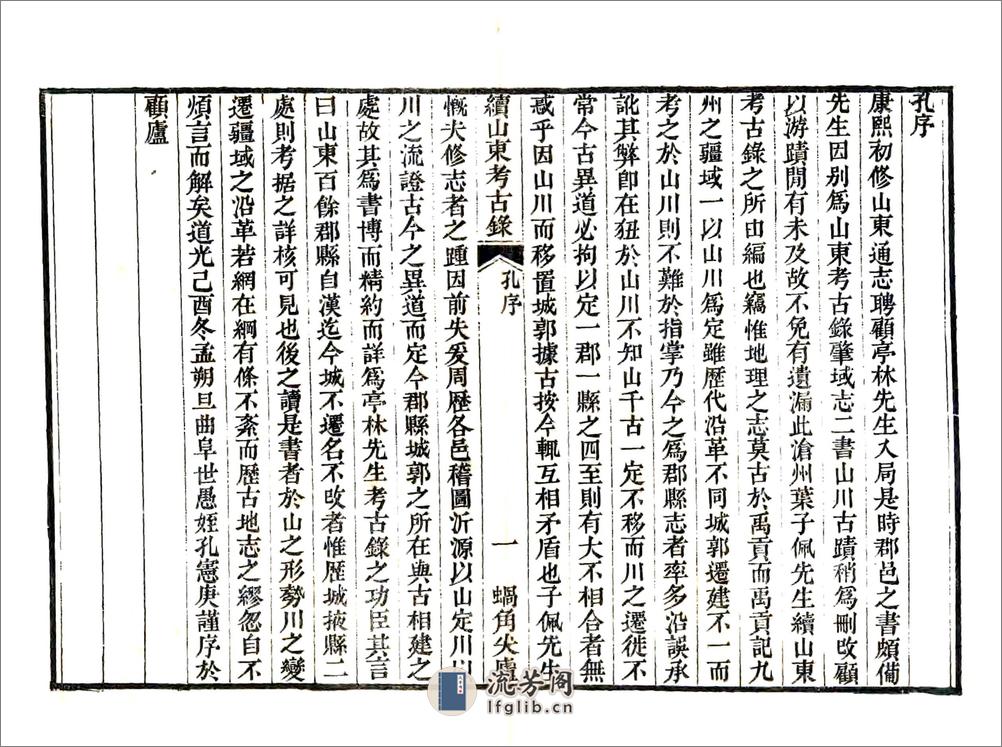 孔序
康熙初修山東通志聘顧亭林先生入局是時郡邑之書頗備
先生因别爲山東考古錄肇域志二書山川古蹟稍爲刪改顧
以游蹟閒有未及故不免有遺漏此滄州葉子佩先生續山東
考古錄之所由編也竊惟地理之志莫古於禹貢而禹貢記九
州之疆域一以山川爲定雖歷代沿革不同城郭遷建不一而
考之於山川則不難於指掌乃今之爲郡縣志者率多沿誤承
訛其弊卽在狃於山川不知山千古一定不移而川之遷徙不
常今古異道必拘以定一郡一縣之四至則有大不相合者無
惑乎因山川而移置城郭據古按今輒互相矛盾也子佩先生
續山東考古錄 孔序 一 蝸角尖廬
慨夫修志者之踵因前失爰周歷各邑稽圖沂源以山定川以
川之流證古今之異道而定今郡縣城郭之所在與古相建之
處故其爲書博而精約而詳爲亭林先生考古錄之功臣其言
曰山東百餘郡縣自漢迄今城不遷名不改者惟歷城掖縣二
處則考据之詳核可見也後之讀是書者於山之形勢川之變
遷疆域之沿革若網在綱有條不紊而歷古地志之繆忽自不
煩言而解矣道光己酉冬孟朔旦曲阜世愚姪孔憲庚謹序於
顧廬
流芳阁
lfglib.cn